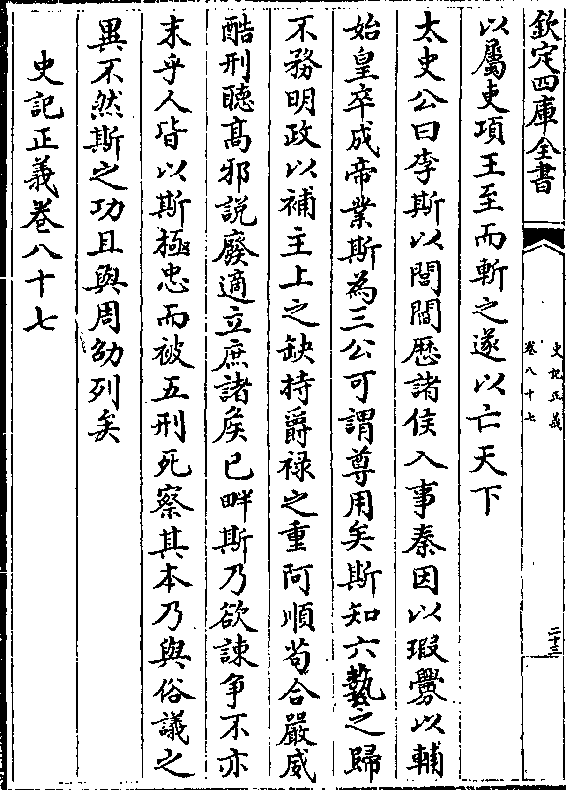 欽定四庫全書
史記正義
卷八十七
二十三
以屬吏項王至而斬之遂以亡天下
太史公曰李斯以閭閻歴諸侯入事秦因以瑕釁以輔
始皇卒成帝業斯為三公可謂尊用矣斯知六藝之歸
不務明政以補主上之缺持爵禄之重阿順茍合嚴威
酷刑聴髙邪說廢適立庶諸矦已畔斯乃欲諌争不亦
末乎人皆以斯極忠而被五刑死察其本乃與俗議之
異不然斯之功且與周劭列矣
史記正義卷八十七